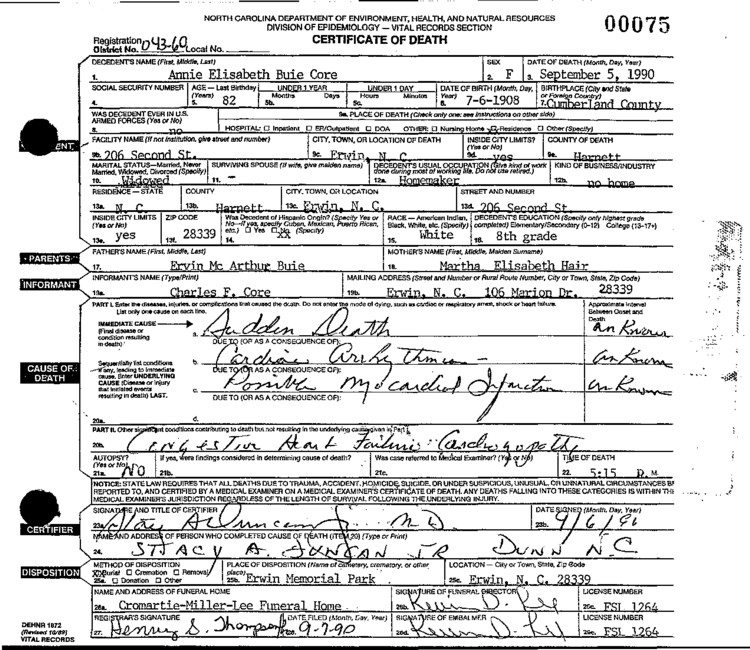 NORTH CAROLINA DEPARTMENT OF ENVIRONMENT, HEALTH, AND NATURAL RESOURCES
DIVISION OF EPIDEMIOLOGY — VITAL RECORDS SECTION
00075
Registration District No. 043-60 Local No.
CERTIFICATE OF DEATH
DECEDENT'S NAME (First, Middle, Last) SEX DATE OF DEATH (Month, Day, Year)
1. Annie Elisabeth Buie Core 2. F 3. September 5, 1990
SOCIAL SECURITY NUMBER AGE — Last Birthday (Years) UNDER 1 YEAR Months Days UNDER 1 DAY Hours Minutes DATE OF BIRTH (Month, Day, Year) BIRTHPLACE (City and State or Foreign Country)
4. 5. 82 5b. 5c. 6. 7-6-1908 7. Cumberland County
WAS DECEDENT EVER IN U.S. ARMED FORCES (Yes or No) 9a. PLACE OF DEATH (Check only one: see instructions on other side)
8. no HOSPITAL: Inpatient ER/Outpatient DOA OTHER: Nursing Home Residence Other (Specify)
FACILITY NAME (If not institution, give street and number) CITY, TOWN, OR LOCATION OF DEATH INSIDE CITY LIMITS (Yes or No) COUNTY OF DEATH
9b. 206 Second St. 9c. Erwin, N. C. 9d. yes 9e. Harnett
MARITAL STATUS—Married, Never Married, Widowed, Divorced (Specify) SURVIVING SPOUSE (If wife, give maiden name) DECEDENT'S USUAL OCCUPATION (Give kind of work done during most of working life. Do not use retired.) KIND OF BUSINESS/INDUSTRY
10. Widowed 11. - 12a. Homemaker 12b. no home
RESIDENCE — STATE COUNTY CITY, TOWN, OR LOCATION STREET AND NUMBER
13a. N. C. 13b. Harnett 13c. Erwin, N. C. 13d. 206 Second St.
INSIDE CITY LIMITS (Yes or No) ZIP CODE Was Decedent of Hispanic Origin? (Specify Yes or No—if yes, specify Cuban, Mexican, Puerto Rican, etc.) Yes No (Specify) RACE — American Indian, Black, White, etc. (Specify) DECEDENT'S EDUCATION (Specify only highest grade completed) Elementary/Secondary (0-12) College (13-17+)
13e. yes 13f. 28339 14. XX 15. White 16. 8th grade
PARENTS
FATHER'S NAME (First, Middle, Last) MOTHER'S NAME (First, Middle, Maiden Surname)
17. Ervin Mc Arthur Buie 18. Martha Elisabeth Hair
INFORMANT
INFORMANT'S NAME (Type/Print) MAILING ADDRESS (Street and Number or Rural Route Number, City or Town, State, Zip Code)
19a. Charles F. Core 19b. Erwin, N. C. 106 Marion Dr. 28339
PART I. Enter the diseases, injuries, or complications that caused the death. Do not enter the mode of dying, such as cardiac or respiratory arrest, shock or heart failure. List only one cause on each line.
Approximate Interval Between Onset and Death
IMMEDIATE CAUSE (Final disease or condition resulting in death)
a. Sudden Death unKnown
DUE TO (OR AS A CONSEQUENCE OF):
Sequentially list conditions if any, leading to immediate cause. Enter UNDERLYING CAUSE (Disease or injury that initiated events resulting in death) LAST.
CAUSE OF DEATH
b. Cardiac Arrhythmia - unKnown
DUE TO (OR AS A CONSEQUENCE OF):
c. Possible Myocardial Infarction unKnown
DUE TO (OR AS A CONSEQUENCE OF):
20a. d.
PART II. Other significant conditions contributing to death but not resulting in the underlying cause given in Part I.
20b. Congestive Heart Failure
AUTOPSY? (Yes or No) If yes, were findings considered in determining cause of death? Was case referred to Medical Examiner? (Yes or No) TIME OF DEATH
21a. NO 21b. 21c. 22. 5:15 P.M.
NOTICE: STATE LAW REQUIRES THAT ALL DEATHS DUE TO TRAUMA, ACCIDENT, HOMICIDE, SUICIDE, OR UNDER SUSPICIOUS, UNUSUAL, OR UNNATURAL CIRCUMSTANCES BE
REPORTED TO, AND CERTIFIED BY A MEDICAL EXAMINER ON A MEDICAL EXAMINER'S CERTIFICATE OF DEATH. ANY DEATHS FALLING INTO THESE CATEGORIES IS WITHIN THE
MEDICAL EXAMINER'S JURISDICTION REGARDLESS OF THE LENGTH OF SURVIVAL FOLLOWING THE UNDERLYING INJURY.
CERTIFIER
SIGNATURE AND TITLE OF CERTIFIER DATE SIGNED (Month, Day, Year)
23a. Stacy A. Duncan Jr. MD 23b. 9/6/90
NAME AND ADDRESS OF PERSON WHO COMPLETED CAUSE OF DEATH (ITEM 20) (Type or Print)
24. STACY A. DUNCAN JR DUNN NC
DISPOSITION
METHOD OF DISPOSITION PLACE OF DISPOSITION (Name of cemetery, crematory, or other place) LOCATION — City or Town, State, Zip Code
Burial Cremation Removal
25a. Donation Other 25b. Erwin Memorial Park 25c. Erwin, N. C. 28339
NAME AND ADDRESS OF FUNERAL HOME SIGNATURE OF FUNERAL DIRECTOR LICENSE NUMBER
26a. Cromartie-Miller-Lee Funeral Home 26b. Kevin D. Lee 26c. FSL 1264
REGISTRAR'S SIGNATURE DATE FILED (Month, Day, Year) SIGNATURE OF EMBALMER LICENSE NUMBER
27. Henry S. Thompson 28. 9-7-90 26d. Kevin D. Lee 26e. FSL 1264
DEHNR 1872
(Revised 10/89)
VITAL RECORDS